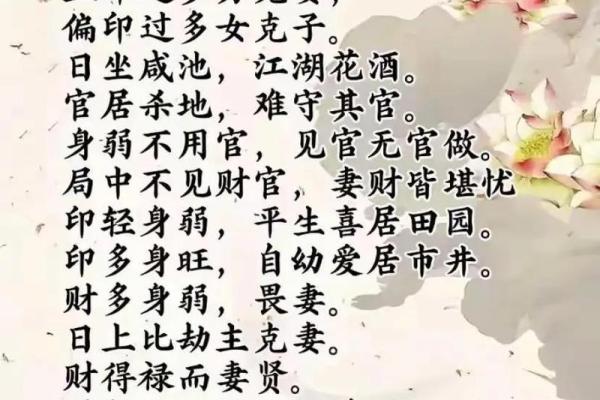 偏印过多女克子。
日坐咸池，江湖花酒。
官居杀地，难守其官。
身弱不用官，见官无官做。
局中不见财官，妻财皆堪忧
印轻身弱，平生喜居田园。
印多身旺，自幼爱居市井。
财多身弱，畏妻。
日上比劫主克妻。
财得禄而妻贤。